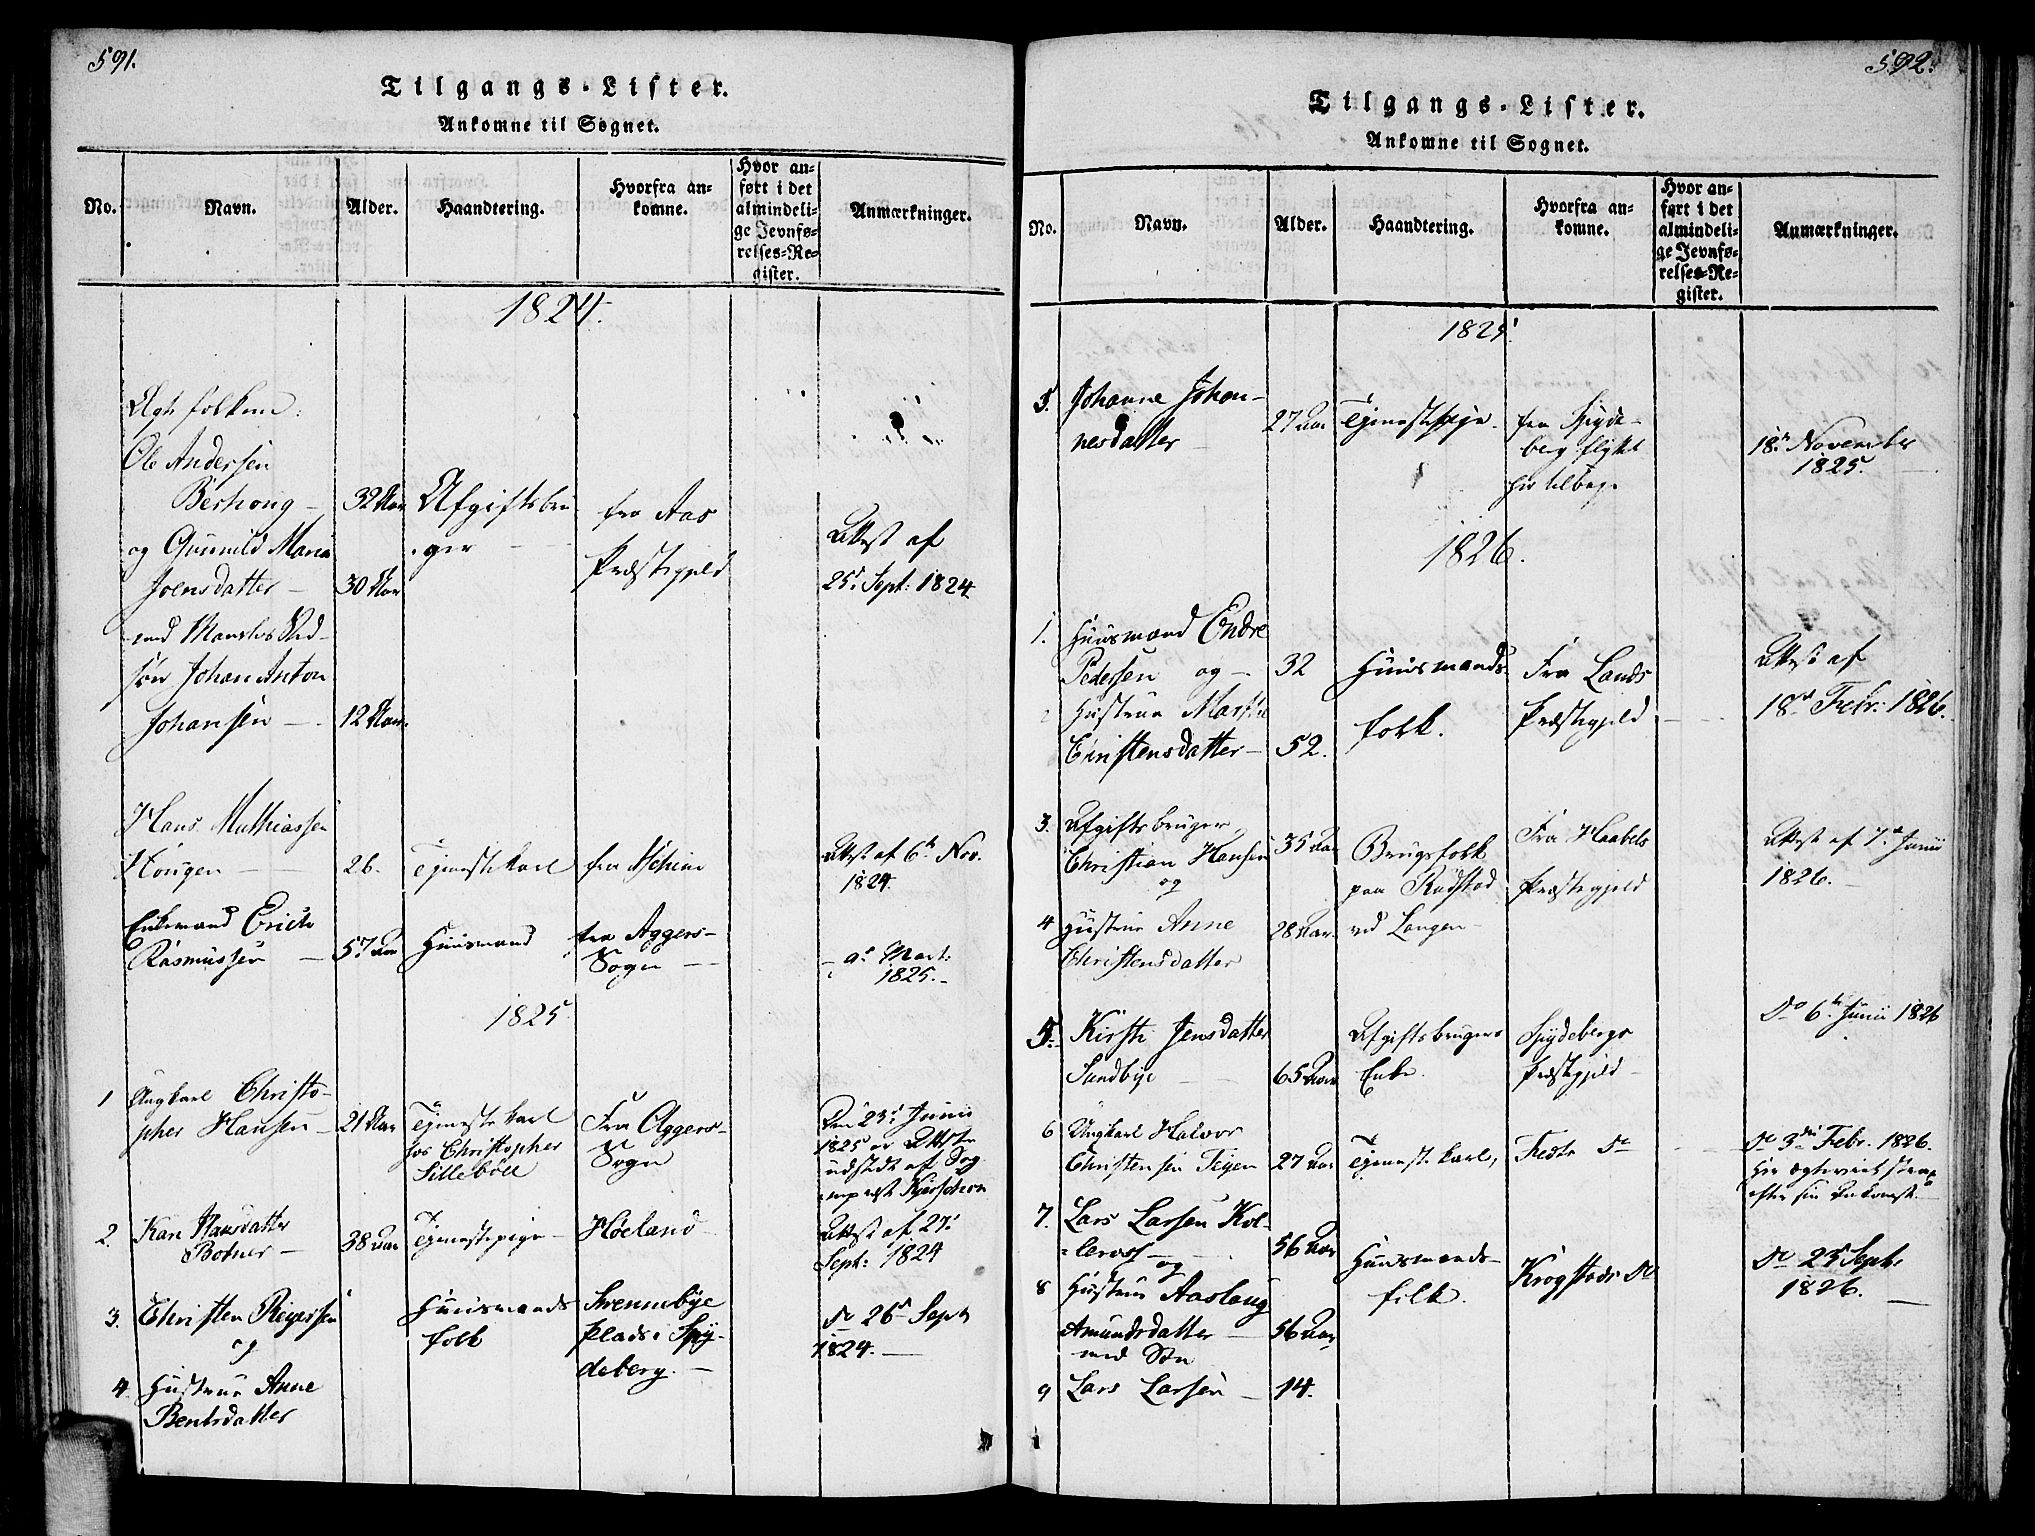 591.
Tilgangs-Lister.
Ankomne til Sognet.
No.
Navn.
Alder.
Haandtering.
Hvorfra an-
komne.
Hvor an-
ført i det
almindeli-
ge Jevnfø-
relses-Re-
gister.
Anmærkninger.
1824.
Ægtefolkene:
Ole Andersen
Berhoug
og Gunnild Maria
Joensdatter
med Mandens Sted-
søn Johan Anton
Johansen
32 Aar
30 Aar
12 Aar
Afgiftsbru
ger
fra Aas
Præstegjeld
Attest af
25de Sept: 1824
Hans Mathiassen
Hougen
26.
Tjenestekarl
Attest af 6te Nov.
1824.
Enkemand Erich
Rasmussen
57 Aar
Huusmand
fra Aggers-
Sogn
9de Mart:
1825.
1825
1
Ungkarl Christo-
pher Hansen
21 Aar
Tjenestekarl
hos Christopher
Sillebøll
Fra Aggers-
Sogn
Den 23de Junii
1825 er Attesten
udstedt af Sog-
nepræst Kierschow
2.
Kari Hansdatter
Botner
38 Aar
Tjenestepige
Høeland
Attest af 27de
Sept: 1824
3.
Christen Reyerssen
og
Huusmands
folk
Svennebye
Plads i Spy-
deberg.
do 26de Sept
1824.
4.
Hustrue Anne
Bentsdatter
592.
Tilgangs-Lister.
Ankomne til Sognet.
No.
Navn.
Alder.
Haandtering.
Hvorfra an-
komne.
Hvor an-
ført i det
almindeli-
ge Jevnfø-
relses-Re-
gister.
Anmærkninger.
1825.
5.
Johanne Johan-
nesdatter
27 Aar
Tjenestepige.
fra Spyde-
berg flyttet
her tilbage
18de November
1825.
1826.
1.
Huusmand Endre
Pedersen og
2
Hustrue Marthe
Christensdatter
32
52.
Huusmands
folk.
Fra Lands
Præstegjeld
Attest af
18de Febr: 1826.
3.
Afgiftsbruger
Christian Hansen
og
35 Aar
Brugsfolk
paa Rudstad
ved Langen
Fra Haabels
Præstegjeld
Attest af 7de Junii
1826.
4
Hustrue Anne
Christensdatter
28 Aar
5.
Kirsti Jensdatter
Sandbye
65 Aar
Afgiftsbrugers
Enke.
Spydebergs
Præstegjeld
do 6te Junii 1826
6
Ungkarl Halvor
Christensen Teigen
27 Aar
Tjenestekarl,
Fedts do
do 3die Febr. 1826.
Her ægteviet strax
efter sin Ankomst.
7.
Lars Larsen Kol-
leraas
og
56 Aar
Huusmands-
folk.
Krogstads do
do 25de Septr.
1826.
8
Hustrue Aaslaug
Amundsdatter
med Søn
56 Aar
9
Lars Larsen
14.